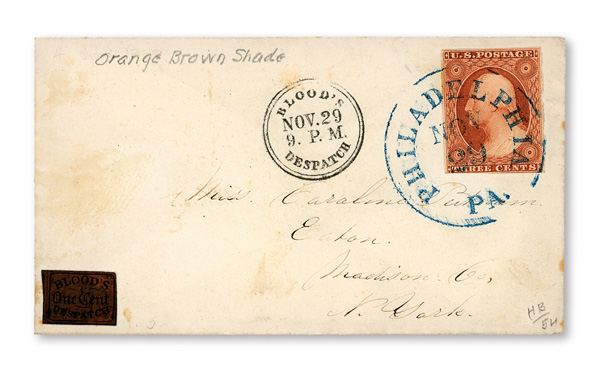 Orange Brown Shade
BLOOD'S
NOV. 29
9. P. M.
DESPATCH
U.S. POSTAGE
THREE CENTS
PHILADELPHIA
NOV
29
PA.
Miss. Caroline Putnam.
Eaton.
Madison. Co,
N. York.
BLOOD'S
One Cent
DESPATCH
HB
54